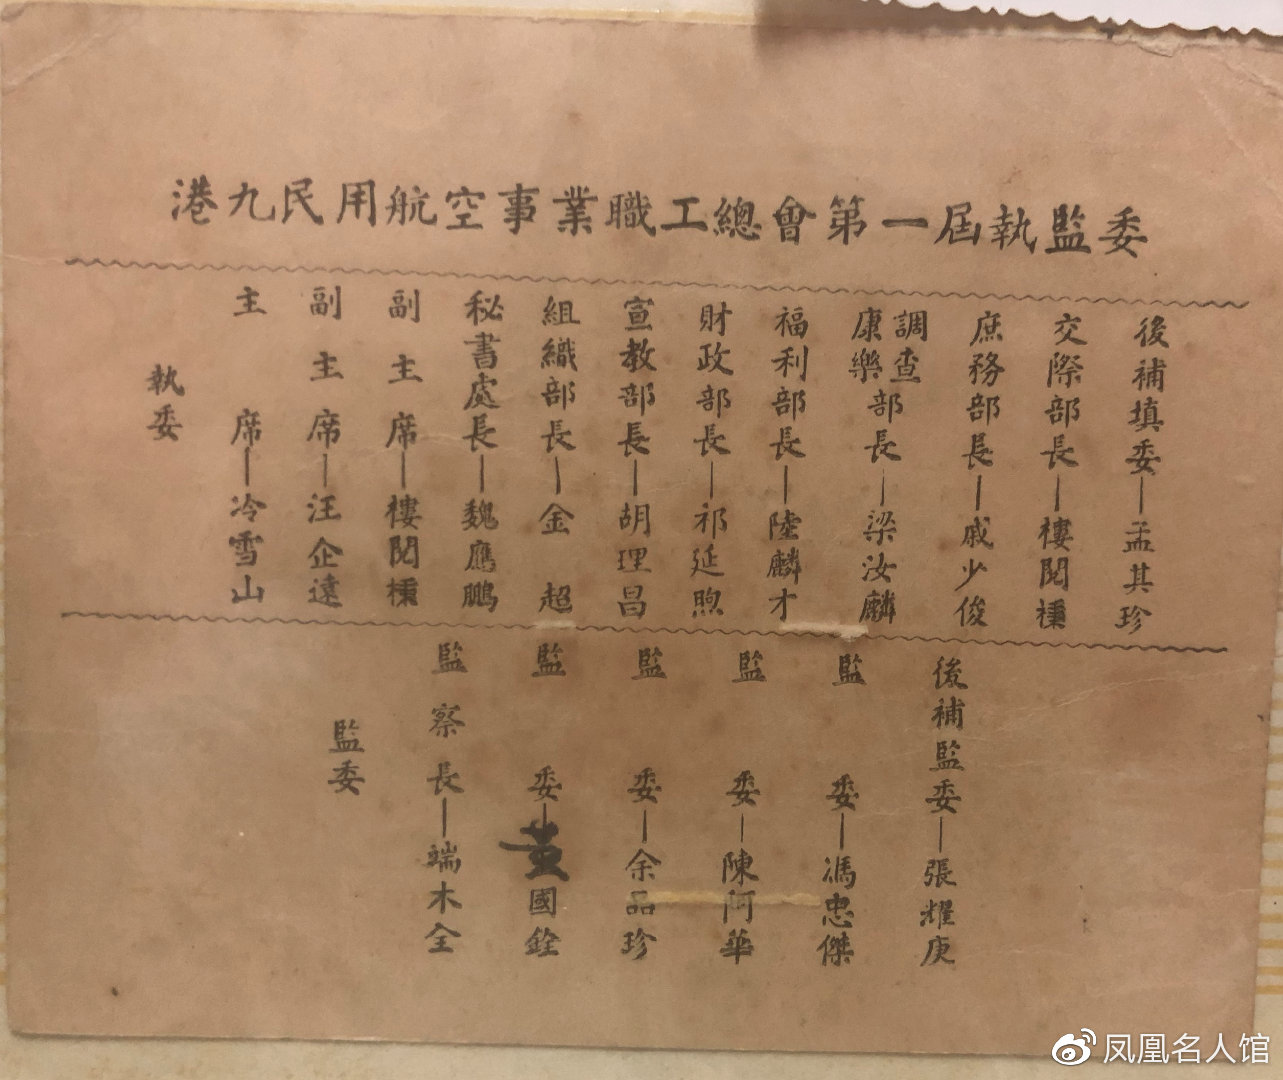 港九民用航空事業職工總會第一屆執監委
執委
主席—冷雪山
副主席—汪企遠
副主席—樓閱橅
秘書處長—魏鷹鵬
組織部長—金超
宣教部長—胡理昌
財政部長—祁延煦
福利部長—陸麟才
調查康樂部長—梁汝麟
庶務部長—戚少俊
交際部長—樓閱橅
後補填委—孟其珍
監委
監察長—端木全
監委—黃國銓
監委—余品珍
監委—陳阿華
監委—馮忠傑
後補監委—張耀庚
凤凰名人馆